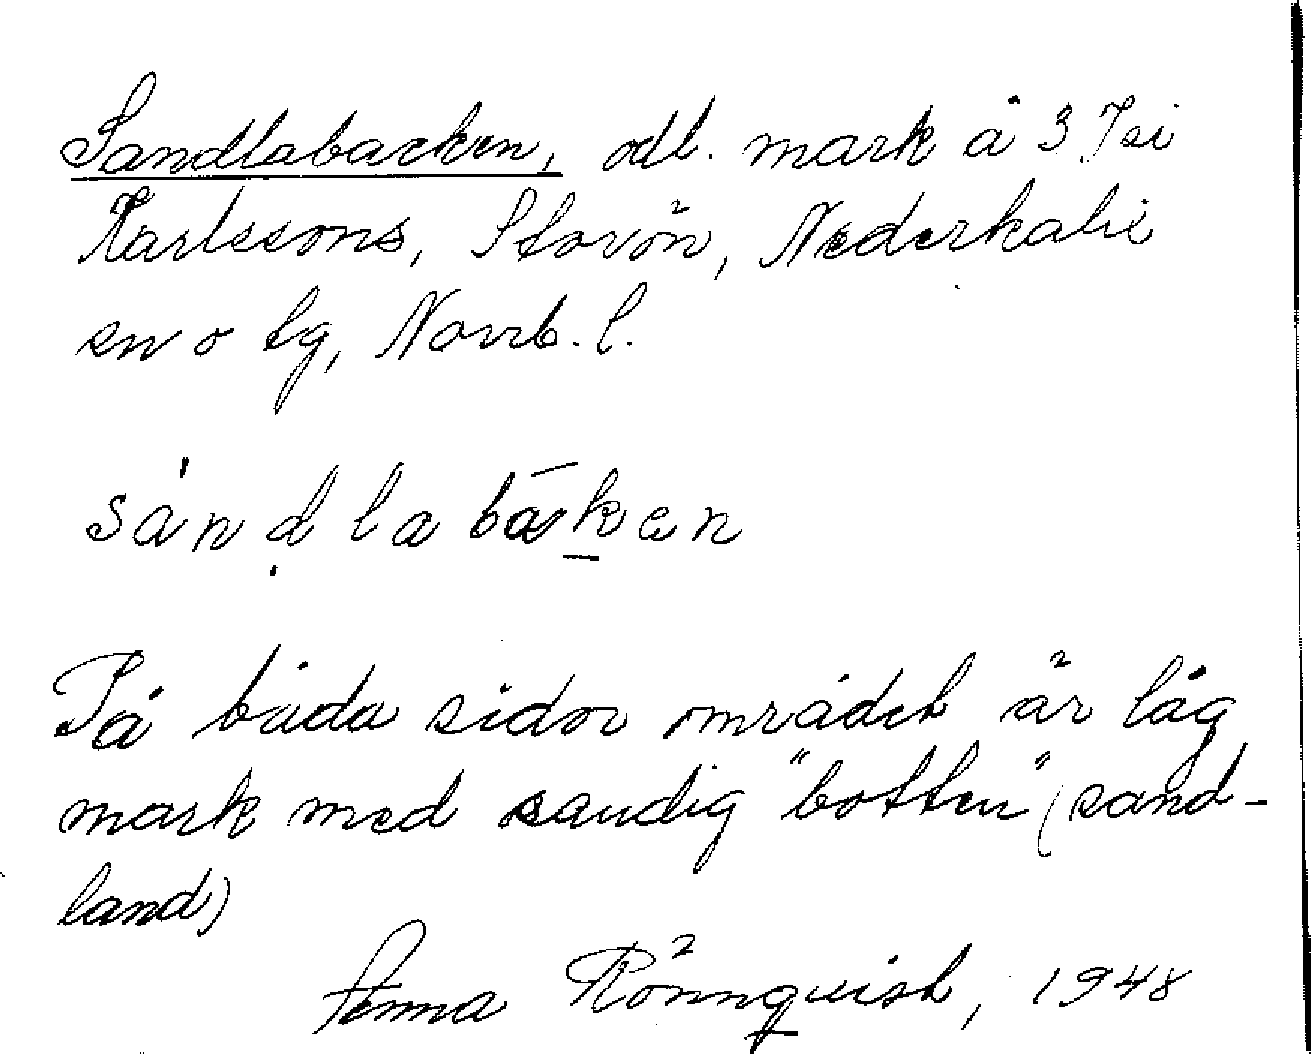 Sandlabacken, odl. mark å 3 Isi
Karlssons, Storön, Nederkalix
sn o tg, Norrb. l.
sán̩ḍlabā̀ken
På båda sidor området är låg
mark med sandig "botten" (sand-
land)
Anna Rönnquist, 1948